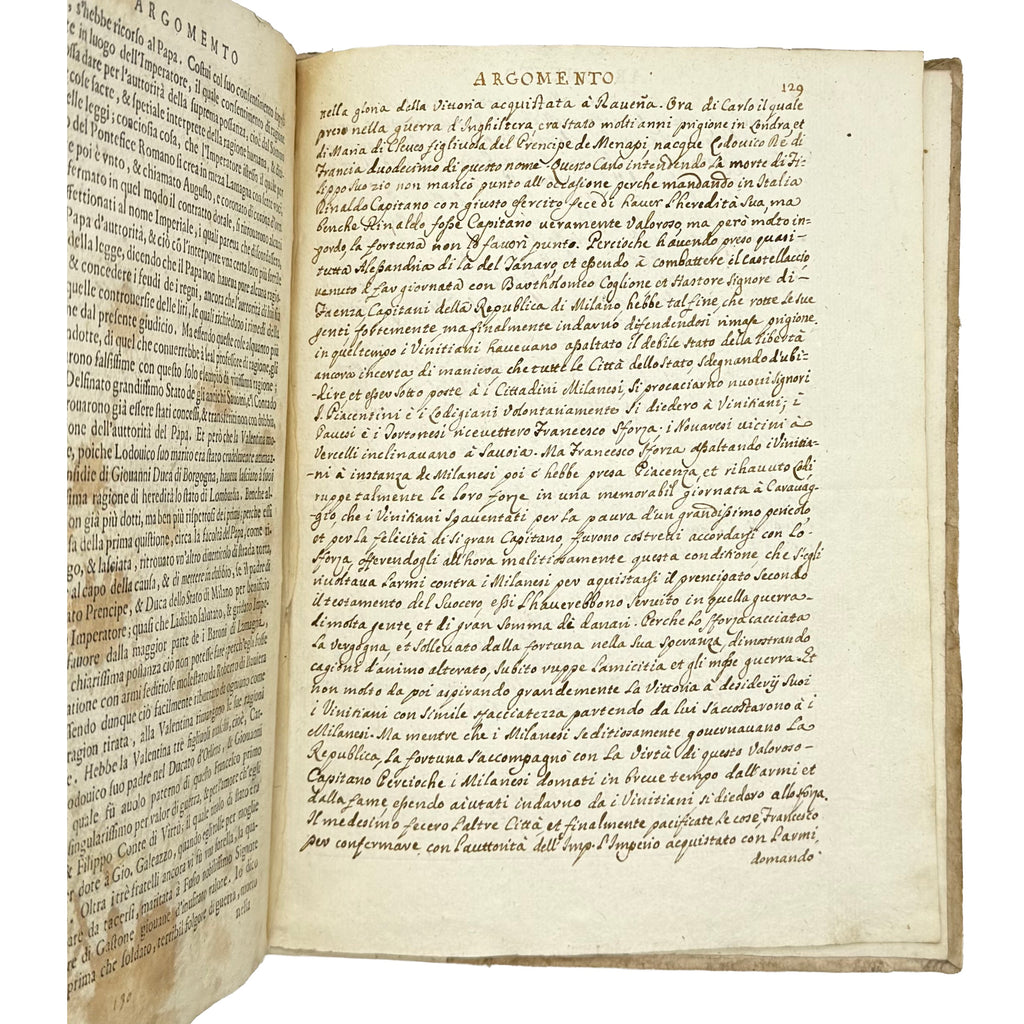 ARGOMEMTO
s'hebbe ricorso al Papa. Costui col suo consentimento
in luogo dell'Imperatore, il quale consentimento di
dare per l'auttorità della suprema possanza. Cioè dal Sommo
cose sacre, & spetiale interprete della ragione humana, & di
delle leggi; conciossia cosa, che l'Imperatore istesso, il quale per
del Pontefice Romano si crea in meza Lamagna con
poi è vnto, & chiamato Augusto, e coronato di corona d'oro
fermato in quel modo il contratto dotale, si ritrouarono alcuni
ffettionati al nome Imperiale, i quali
Papa d'autorità, & ciò cō l'interporre vna certa loro più
della legge, dicendo che il Papa non haueua pure alcuna ragio
& concedere i feudi de i regni, ancora che l'autorità di
quelle controuersie delle liti, le quali richiedono i rimedi della
ne dal presente giudicio. Ma essendo quelle cose alquanto più
ndotte, di quel che conuerrebbe à i rei professore di regni, gli
rono falsissime con questo solo essempio di viuissima ragione;
Delfinato grandissimo Stato de gli antichi Sauoini, e'l Contado
trouarono già essere stati concessi, & transferiti non con dubbio,
one dell'auttorità del Papa. Et però che la Valentina mo-
e, poiche Lodouico suo marito era stato crudelmente ammaz-
nsidie di Giouanni Duca di Borgogna, haueua lasciato à suoi
sima ragione di heredità lo stato di Lombardia. Benche al-
on già più dotti, ma ben più rispettosi de i primi; perche essi
sa della prima quistione, circa la facoltà del Papa, come
go, & lasciata, ritrouato vn'altro diuerticolo di strada torta,
al capo della causa, & di mettere in dubbio, se il padre di
ato Prencipe, & Duca dello Stato di Milano per beneficio
Imperatore; quasi che Ladislao salutato, & gridato Impe-
fauore dalla maggior parte de i Baroni di Lamagna,
chiarissima possanza ciò non potesse fare perch'egli fosse
tione con armi seditiose molestato da Roberto di Bauiera
ffendo dunque ciò facilmente ributtato da ognuno come
ragion tirata, alla Valentina rimangono le sue ragioni
Hebbe la Valentina tre figliuoli maschi, cioè, Car-
odouico suo padre nel Ducato d'Orliens, di Giouanni
quale fù auolo paterno di questo Francesco primo
singularissimo per valor di guerra, &
Filippo Conte di Virtù, il quale
r dote à Gio. Galeazzo, quando egli tolse per moglie
Oltra i trè fratelli ancora vi fu vna sorella, la qua-
are da tacersi, maritata à Fusso nobilissimo Signore
re di Gastone giouane d'inusitato valore. Io dico
prima che soldato, terribil folgore di guerra, morto
nella
130
ARGOMENTO
129
nella gloria della Vittoria acquistata à Raueña. Ora di Carlo il quale
preso nella guerra d'Inghilterra, era stato molti anni prigione in Londra et
di Maria di Cleues figliuola del Prencipe de Menapi, nacque Lodouico Rè di
Francia duodecimo di questo nome. Questo Carlo intendendo la morte di Fi-
lippo suo zio non mancò punto all'occasione perche mandando in Italia
Rinaldo Capitano con giusto esercito fece di hauer l'heredità sua, ma
benche Rinaldo fosse Capitano ueramente Valoroso, ma però molto in-
gordo, la fortuna non lo fauorì punto. Percioche hauendo preso quasi
tutta Alessandria di là del Tanaro, et essendo à combattere il castellaccio,
venuto è far giornata con Bartholomeo Coglione et Hastore Signore di-
Faenza Capitani della Republica di Milano, hebbe tal fine, che rotte le sue
genti, fortemente, ma finalmente indarno difendendosi rimase prigione.
in quel tempo i Vinitiani haueuano assaltato il debile stato della libertà
ancora incerta di maniera che tutte le Città dello Stato, sdegnando d'ubi-
dire, et esser sotto poste à i Cittadini Milanesi, si procaciarno nuoui signori
I Piacentini è i Lodigiani volontariamente si diedero à Vinitiani; i
Pauesi è i Tortonesi riceuettero Francesco Sforza. i Nouaresi vicini à
Vercelli inclinauano à Sauoia. Ma Francesco Sforza assaltando i Vinitia-
ni à instanza de Milanesi poi c'hebbe presa Piacenza, et rihauuto Lodi
ruppe talmente le loro forze in una memorabil giornata à Carauag-
gio, che i Vinitiani spauentati per la paura d'un grandissimo pericolo
et per la felicità di si gran Capitano, furono costretti accordarsi con Lo
Sforza, offerendogli all'hora malitiosamente questa conditione, che s'egli
riuoltaua l'armi contra i Milanesi per aquistarsi il prencipato secondo
il testamento del suocero, essi l'hauerebbono seruito in quella guerra
di molta gente, et di gran somma di danari. Perche lo Sforza cacciata
la vergogna, et solleuato dalla fortuna nella sua speranza, dimostrando
cagioni d'animo alterato, subito ruppe l'amicitia et gli mosse guerra. Et
non molto da poi aspirando grandemente la Vittoria à desiderij suoi
i Vinitiani con simile sfacciatezza partendo da lui s'accostarono à i
Milanesi. Ma mentre che i Milanesi seditiosamente gouernauano la
Republica, la fortuna s'accompagnò con la Virtù di questo Valoroso-
Capitano Percioche i Milanesi domati in breue tempo dall'armi et
dalla fame, essendo aiutati indarno da i Vinitiani si diedero allo Sforza.
Il medesimo fecero l'altre Città, et finalmente pacificate le cose, Francesco
per confermare, con l'auttorità dell'Imp. l'Imperio acquistato con l'armi,
domando